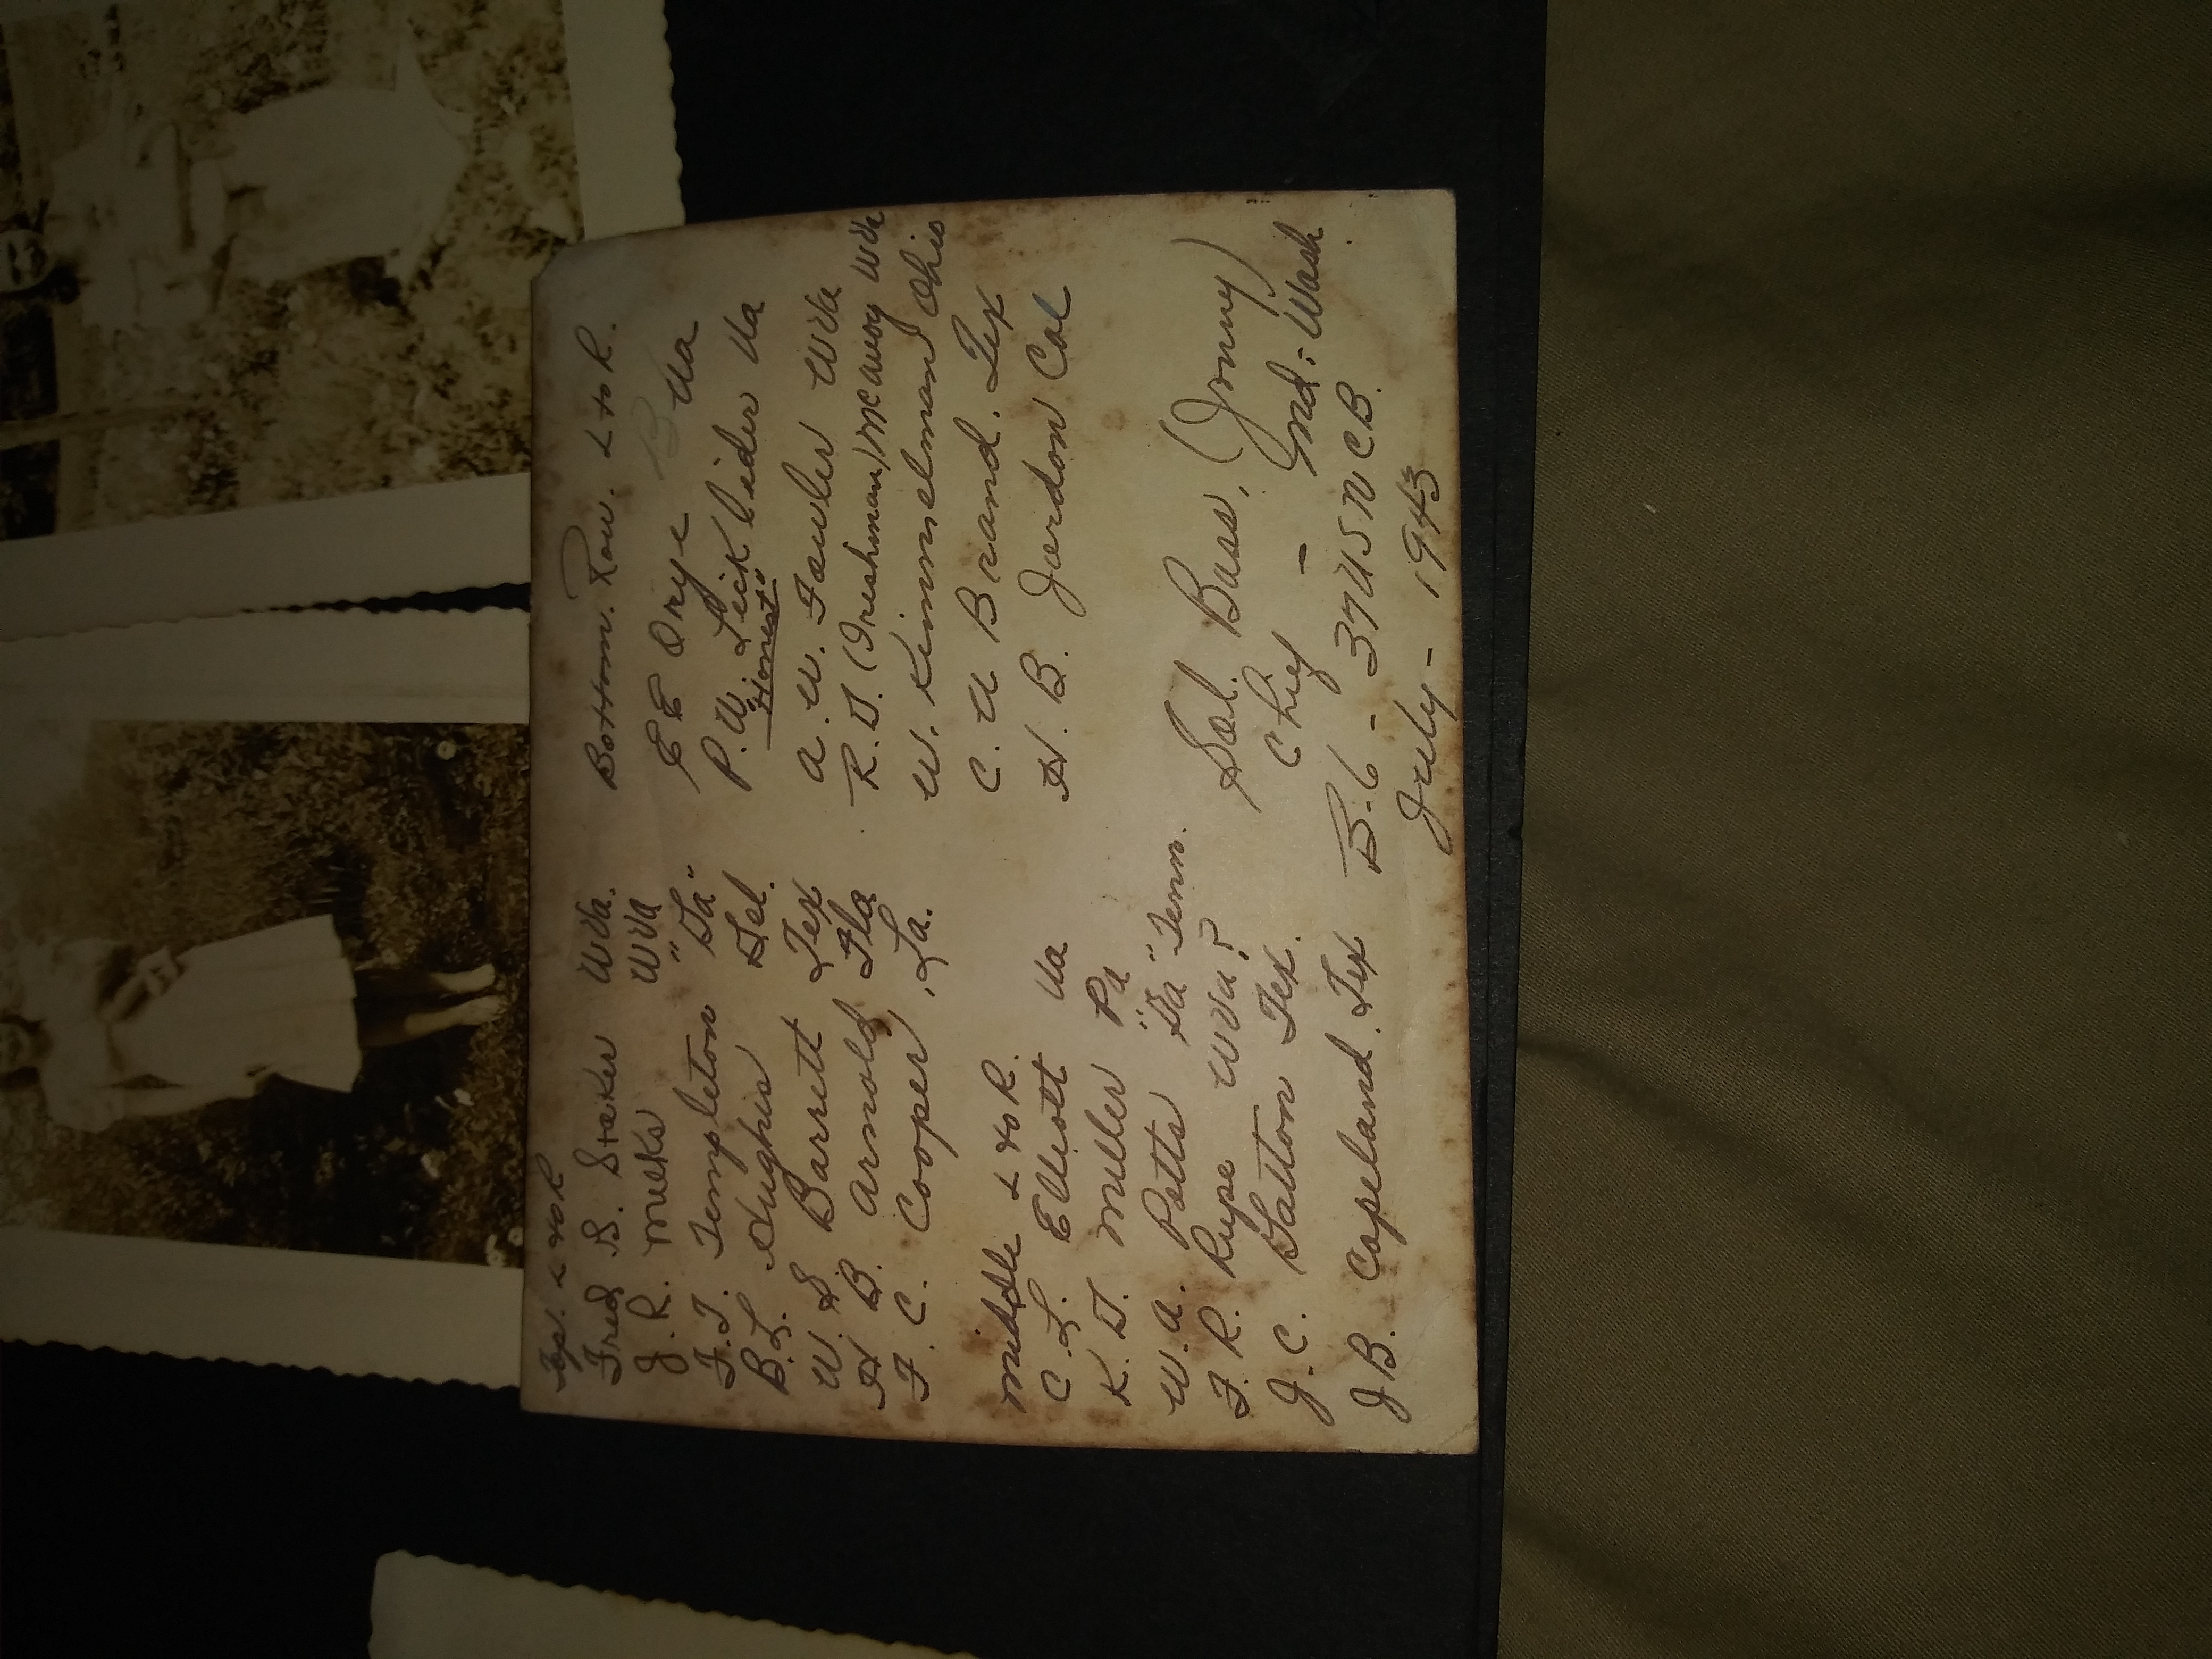 Top. L to R
Fred B. Staker WVa.
J. R. Meeks WVa
F. T. Templeton "Ga"
B. L. Hughes Del.
W. S Barrett Tex
H B. Arnold Fla
F. C. Cooper, La.
Middle L to R.
C. L. Elliott Va
K. D. Miller Pa
W. A. Potts "Ga" Tenn.
F. R. Rupe WVa?
J. C. Gatton Tex.
J B. Copeland. Tex
Bottom. Row. L to R.
E E Orye Va
P. W. Va
"Honest"
A. W. Fowler WVa
R. D. (Irishman) McAvoy WVa
W. Kimmelman Ohio
C. W Brand. Tex
H. B. Jordon Cal
Sal. Buss. (Jonny)
Chief - Ind: Wash.
B-6 - 37 USNCB.
July - 1943